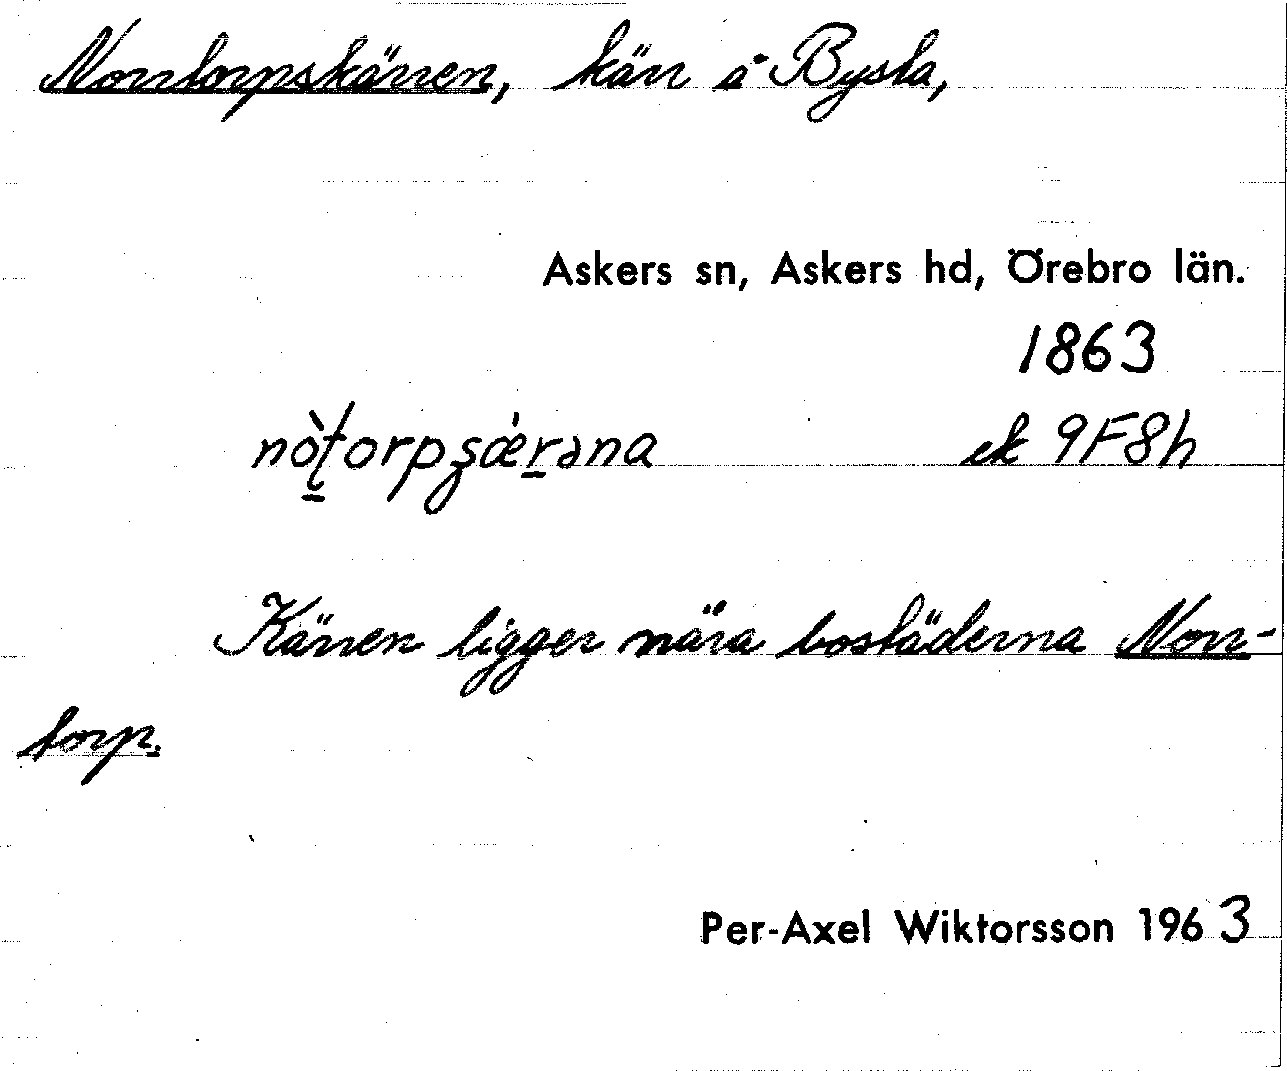 Norrtorpskärren, kärr i Bysta,
Askers sn, Askers hd, Örebro län.
1863
nòt̠orpʂǽr̠əna ek 9F8h
Kärren ligger nära bostäderna Norr-
torp.
Per-Axel Wiktorsson 1963